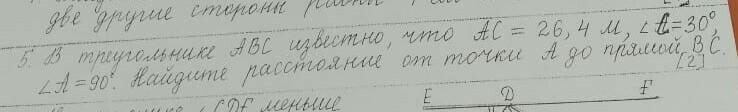 две другие стороны равны
5. В треугольнике ABC известно, что AC = 26,4 м, ∠C=30°,
∠A=90°. Найдите расстояние от точки A до прямой BC.
[2]
∠CDF меньше
E D F